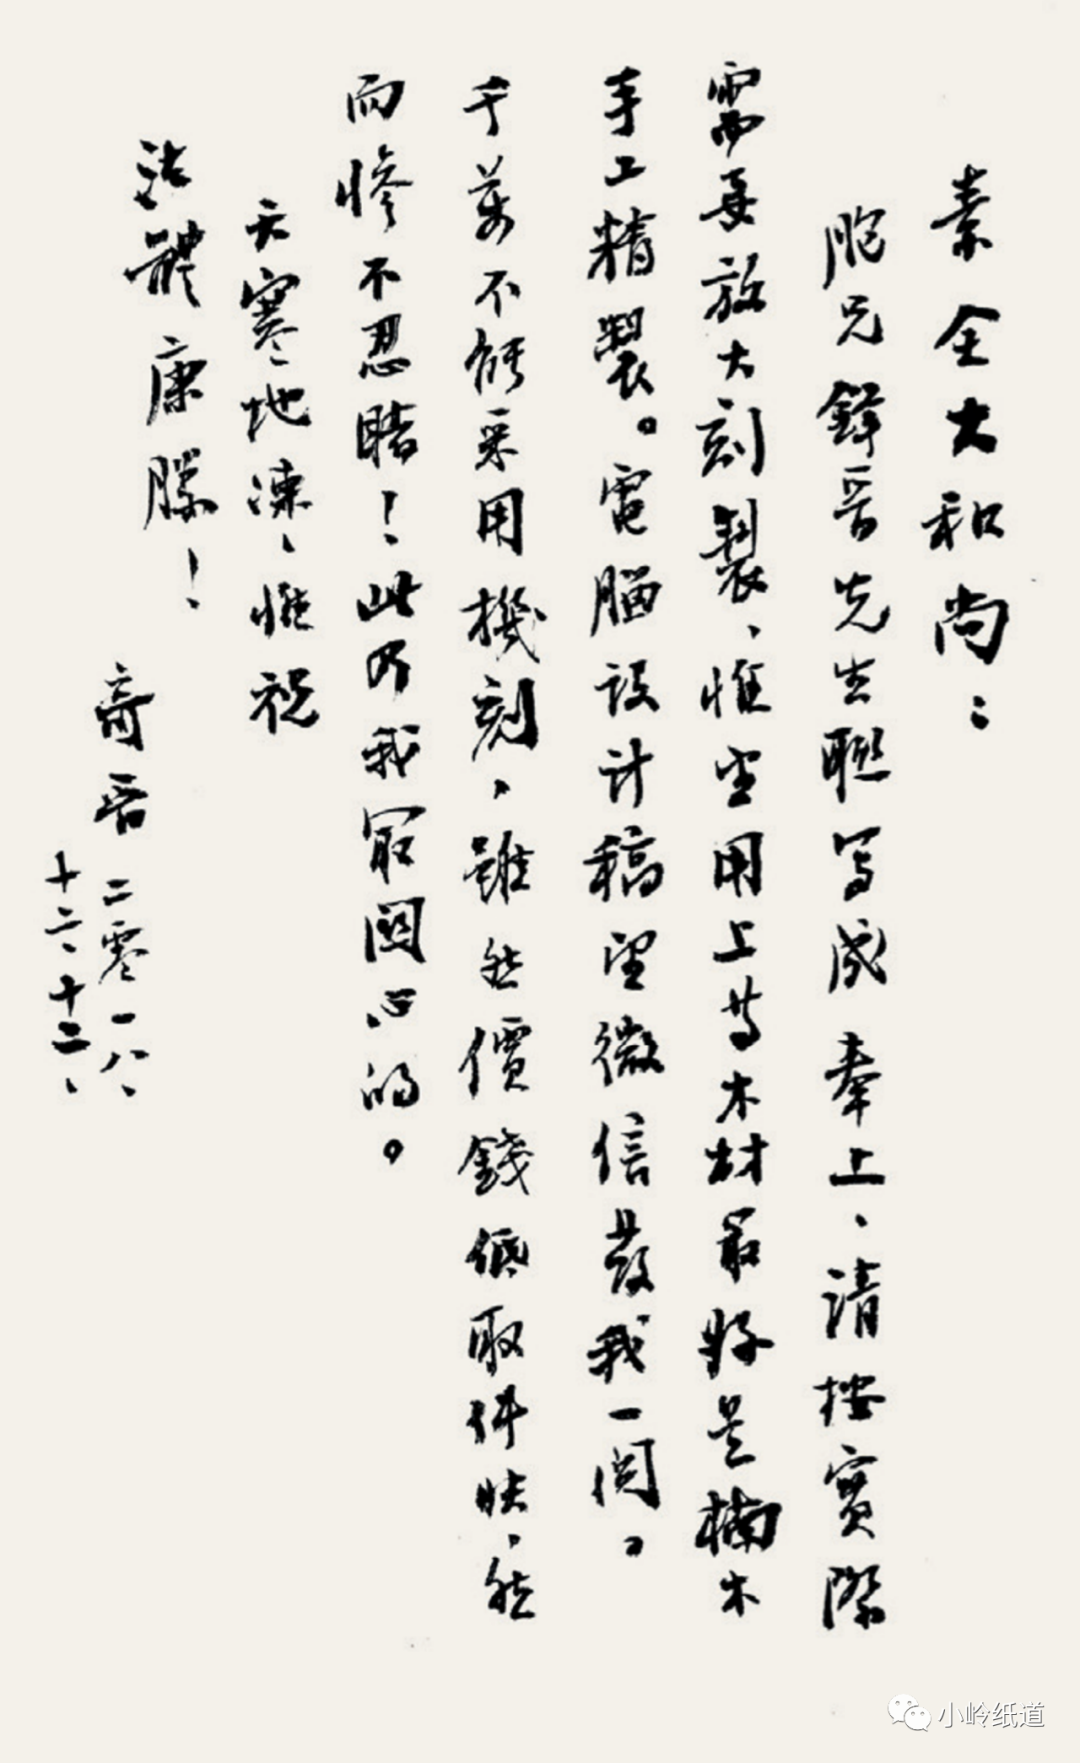 素全大和尚：
胞兄鐸晋先生聯写成奉上、请按實際
需要放大刻製、惟望用上等木材最好是楠木
手工精製。電腦设计稿望微信發我一阅。
千萬不能采用機刻，雖然價錢低取件快、然
而慘不忍睹！此乃我最関心的。
天寒地凍、惟祝
法體康勝！
奇晋 二零一八、
十二、十二、
小岭纸道